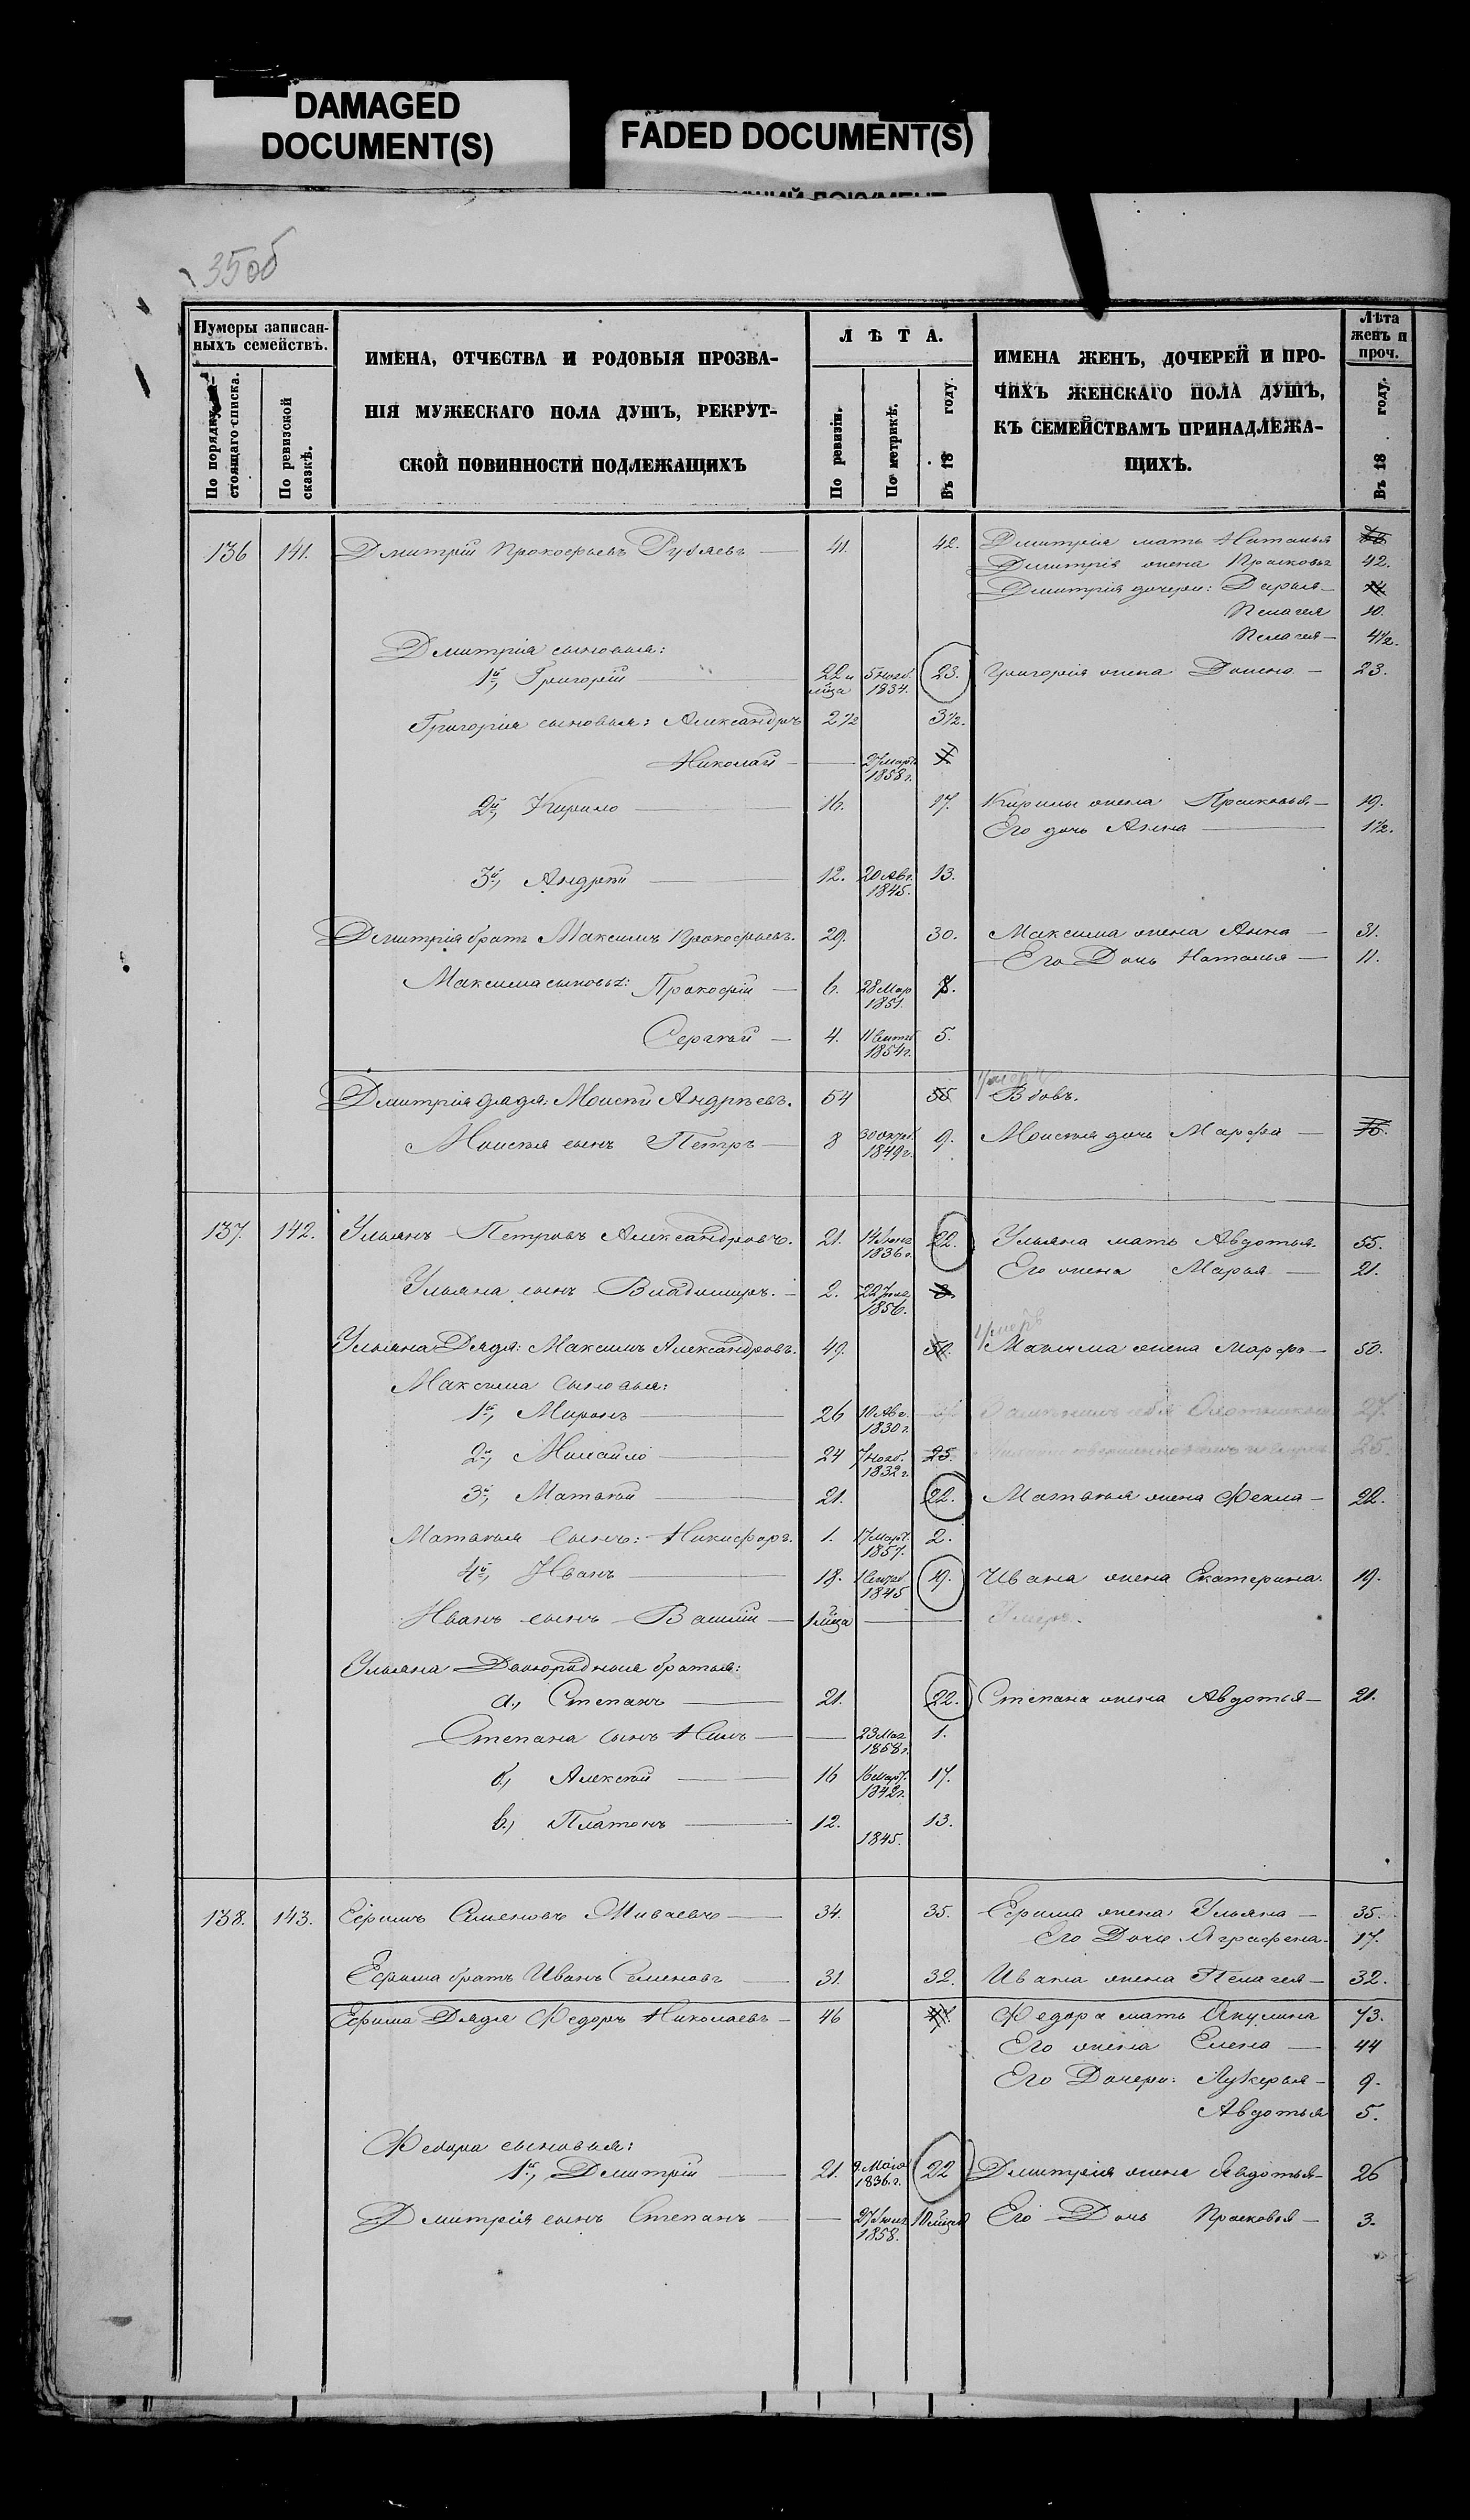 DAMAGED
DOCUMENT(S)
FADED DOCUMENT(S)
35об
Нумеры записан-
ныхъ семействъ.
По порядку
стоящаго списка.
По ревизской
сказкѣ.
ИМЕНА, ОТЧЕСТВА И РОДОВЫЯ ПРОЗВА-
НІЯ МУЖЕСКАГО ПОЛА ДУШЪ, РЕКРУТ-
СКОЙ ПОВИННОСТИ ПОДЛЕЖАЩИХЪ
ЛѢТА.
По ревизіи.
По метрикѣ.
Въ 18 году.
ИМЕНА ЖЕНЪ, ДОЧЕРЕЙ И ПРО-
ЧИХЪ ЖЕНСКАГО ПОЛА ДУШЪ,
КЪ СЕМЕЙСТВАМЪ ПРИНАДЛЕЖА-
ЩИХЪ.
Лѣта
женъ и
проч.
Въ 18 году.
136 141. Дмитрій Прокофьевъ 41. 42. Дмитрія мать Наталья
Дмитрія жена Прасковья 42.
Дмитрія дочери: Дарья
Пелагея 10.
Пелагея 4½.
Дмитрія сыновья:
1й, Григорій 22 и 5 Нояб. 1834. 23. Григорія жена Домна 23.
Григорія сыновья: Александръ 2½ 3½.
Николай 27 Март 1858 г.
2й, Кирило 16. 17. Кирилы жена Прасковья 19.
Его дочь Анна 1½.
3й, Андрей 12. 20 Авг. 1845. 13.
Дмитрія братъ Максимъ Прокофьевъ. 29. 30. Максима жена Анна 31.
Его Дочь Наталья 11.
Максима сыновья: Прокофій 6. 28 Мар 1851. 8.
Сергѣй 4. 1854 г. 5.
Дмитрія дядя: Моисей Андреевъ. 54 55 Вдовъ.
Моисея сынъ Петръ 8 30 Октяб. 1849 г. 9. Моисея дочь Марфа
137. 142. Ульянъ Петровъ Александровъ. 21. 14 Іюня 1836 г. 22. Ульяна мать Авдотья 55.
Его жена Марья 21.
Ульяна сынъ Владимиръ. 2. 1856. 3
умеръ
Ульяна Дядя: Максимъ Александровъ. 49. 50. Максима жена Марфа 50.
Максима сыновья:
1й, Миронъ 26 10 Авг. 1830 г. 27.
2й, Михайло 24 7 Нояб. 1832 г. 25. 25.
3й, Матвѣй 21. 22. Матвѣя жена Фекла 22.
Матвѣя сынъ: Никифоръ. 1. 17 Март. 1857. 2.
4й, Иванъ 18. 1845 19. Ивана жена Екатерина. 19.
Иванъ сынъ Василій 1 мѣца Умеръ.
Ульяна Двоюродные братья:
а, Степанъ 21. 22. Степана жена Авдотья 21.
Степана сынъ Нилъ 23 Мая 1858 г. 1.
б, Алексѣй 16 16 Март. 1842 г. 17.
в, Платонъ 12. 1845. 13.
138. 143. Ефимъ Семеновъ 34. 35. Ефима жена Ульяна 35.
Его Дочь Аграфена 17.
Ефима братъ Иванъ Семеновъ 31. 32. Ивана жена Пелагея 32.
Ефима Дядя Федоръ Николаевъ 46 Федора мать Акулина 73.
Его жена Елена 44
Его Дочери: Лукерья 9.
Авдотья 5.
Федора сыновья:
1й, Дмитрій 21. Мая 1836 г. 22 Дмитрія жена Авдотья 26
Дмитрія сынъ Степанъ 1858. 10 мѣца Его Дочь Прасковья 3.